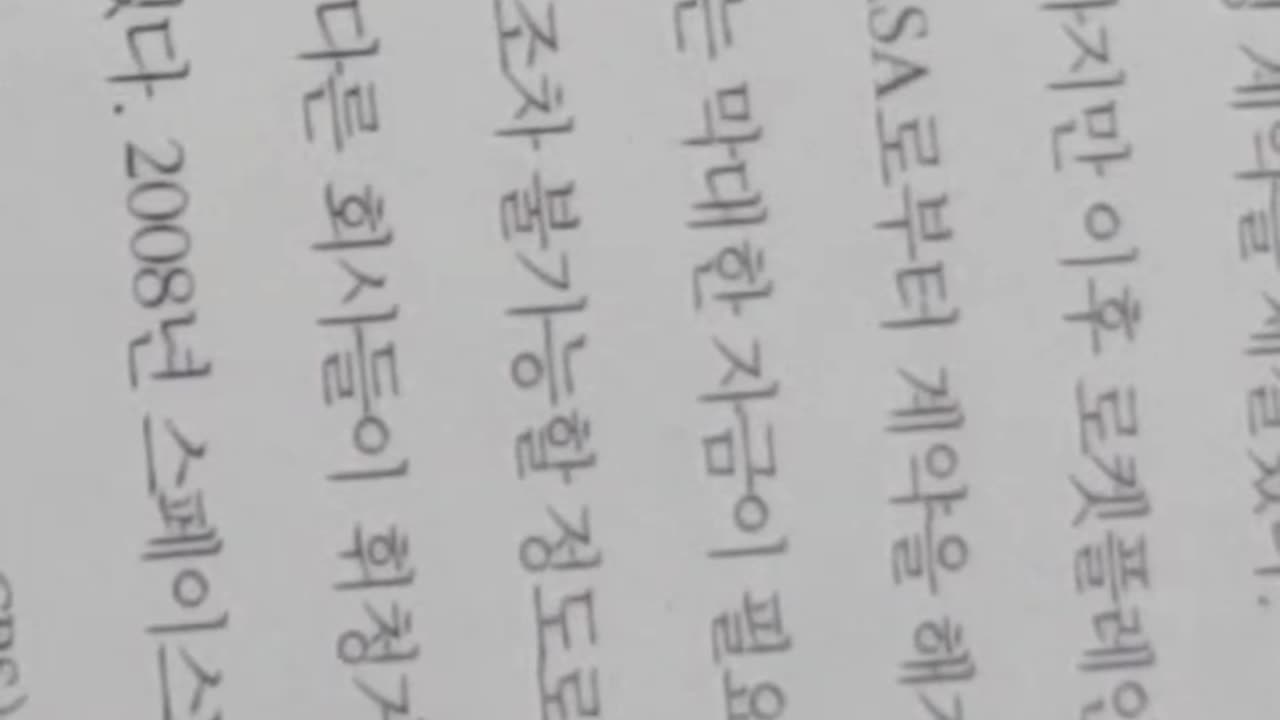 계약을
지만 이후 로켓플레인
SA로부터 계약을 해
는 막대한 자금이 필요
조차 불가능할 정도로
다른 회사들이 휘청
다. 2008년 스페이스